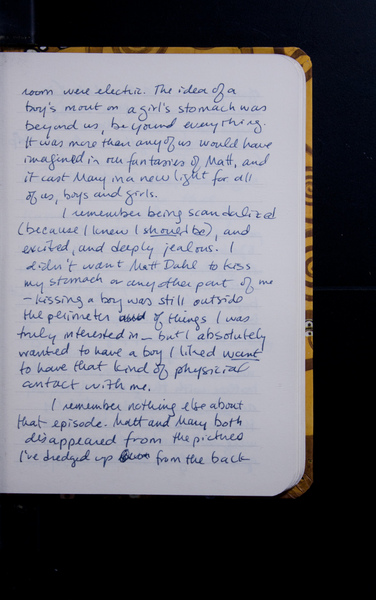 room were electric. The idea of a
boy's mout on a girl's stomach was
beyond us, beyound everything.
It was more than any of us would have
imagined in our fantasies of Matt, and
it cast Mary in a new light for all
of us, boys and girls.
I remember being scandalized
(because I knew I should be), and
excited, and deeply jealous. I
didn't want Matt Dahl to kiss
my stomach or any other part of me
– kissing a boy was still outside
the perimeter of things I was
truly interested in – but I absolutely
wanted to have a boy I liked want
to have that kind of physicial
contact with me.
I remember nothing else about
that episode. Matt and Mary both
disappeared from the pictures
I've dredged up from the back